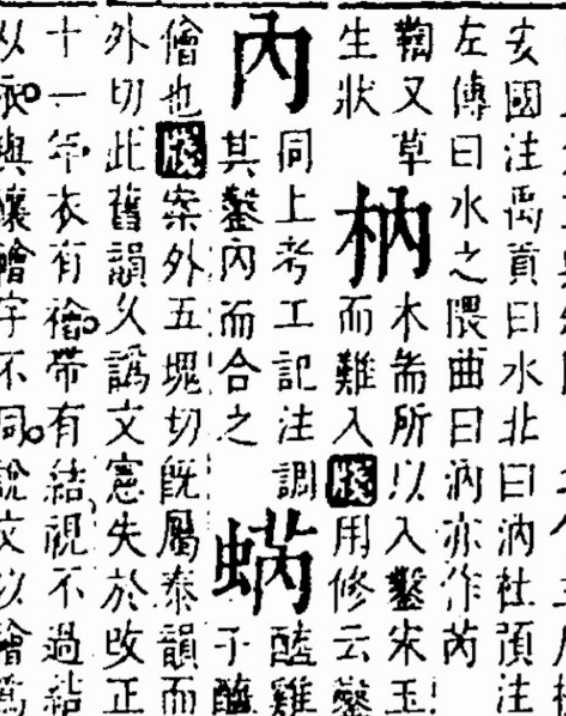 安國注禹貢曰水北曰汭杜預注
左傳曰水之隈曲曰汭亦作芮
鞫又草
生狀
枘
木耑所以入鑿宋玉
而難入牋用修云鑿
內
同上考工記注調
其鑿內而合之
蜹
醯雞
子醯
儈也牋案外五塊切旣屬泰韻而
外切此舊韻久譌文憲失於改正
十一年衣有襘帶有結視不過結
與禳禬字不同說文以禬爲